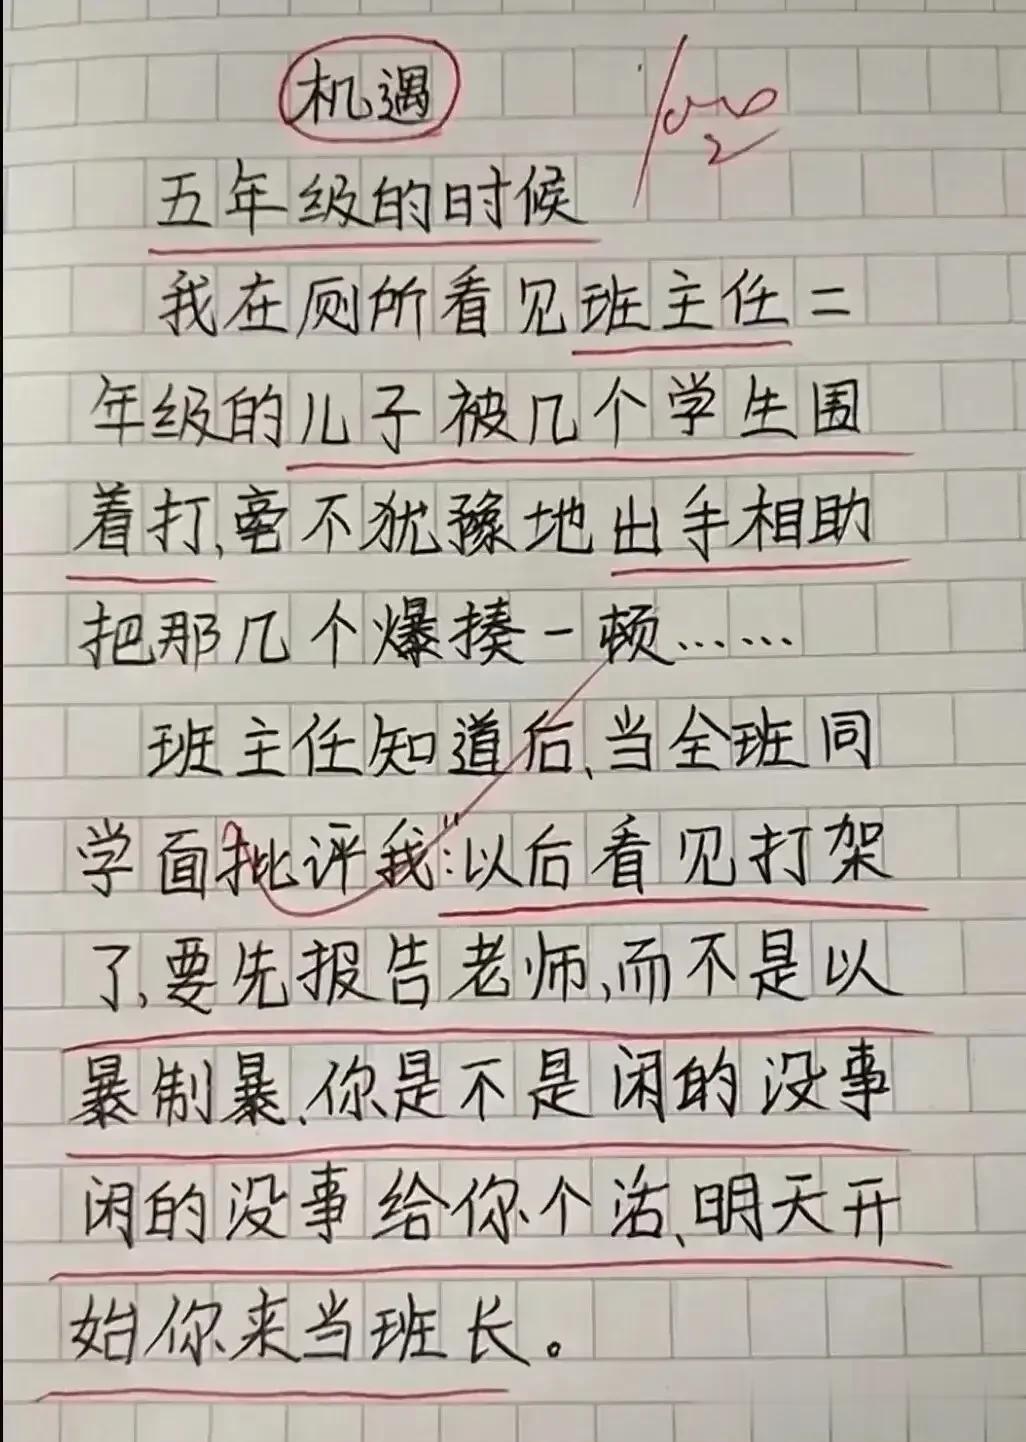 机遇
100
五年级的时候
我在厕所看见班主任二
年级的儿子被几个学生围
着打,毫不犹豫地出手相助
把那几个爆揍一顿……
班主任知道后、当全班同
学面批评我:“以后看见打架
了,要先报告老师,而不是以
暴制暴、你是不是闲的没事
闲的没事给你个活、明天开
始你来当班长。